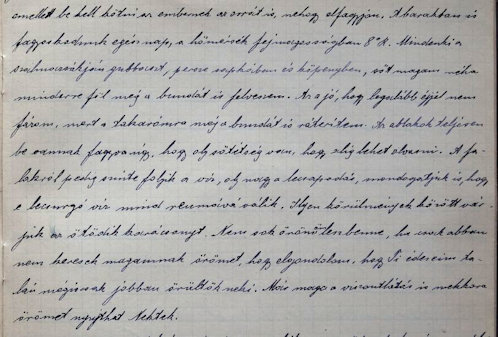 emellett be kell kötni az embernek az orrát is, nehogy elfagyjon. A barakban is
fagyoskodunk egész nap, a hőmérsék fejmagasságban 8°R. Mindenki a
szalmazsákján gubbaszt, persze sapkában és köpenyben, sőt magam néha
minderre föl még a bundát is felveszem. Az a jó, hogy legalább éjjel nem
fázom, mert a takarómra még a bundát is ráterítem. Az ablakok teljesen
be vannak fagyva úgy, hogy oly sötétség van, hogy alig lehet olvasni. A fa-
lakról pedig szinte folyik a víz, oly nagy a lecsapodás, mondogatjuk is, hogy
e lecsurgó víz mind reumává válik. Ilyen körülmények között vár-
juk az ötödik karácsonyt. Nem sok örömöt lenne benne, ha csak abban
nem keresek magamnak örömet, hogy elgondolom, hogy Ti édeseim ta-
lán mégiscsak jobban örültök neki. Már maga a viszontlátás is mekkora
örömet nyújthat Nektek.